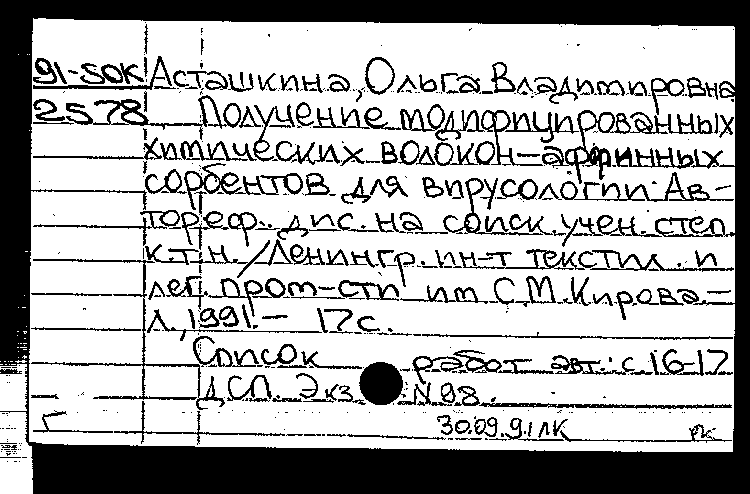 91-SOK Асташкина, Ольга Владимировна
2578 Получение модифицированных
химических волокон-аффинных
сорбентов для вирусологии: Ав-
тореф. дис. на соиск. учен. степ.
к.т.н. / Ленингр. ин-т текстил. и
лег. пром-сти им С.М. Кирова. =
Л., 1991. - 17 с.
Список работ авт.: с. 16-17
ДСП. Экз. N 98.
30.09.91 ЛК